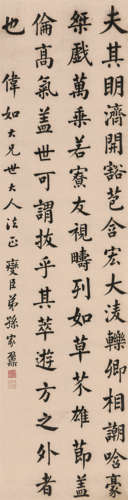 夫其明濟開豁苞含宏大凌轢卿相謿哈豪
桀戲萬乘若寮友視疇列如草芥雄節蓋
倫高氣蓋世可謂拔乎其萃遊方之外者
也 偉如大兄世大人法正 燮臣弟孫家鼐